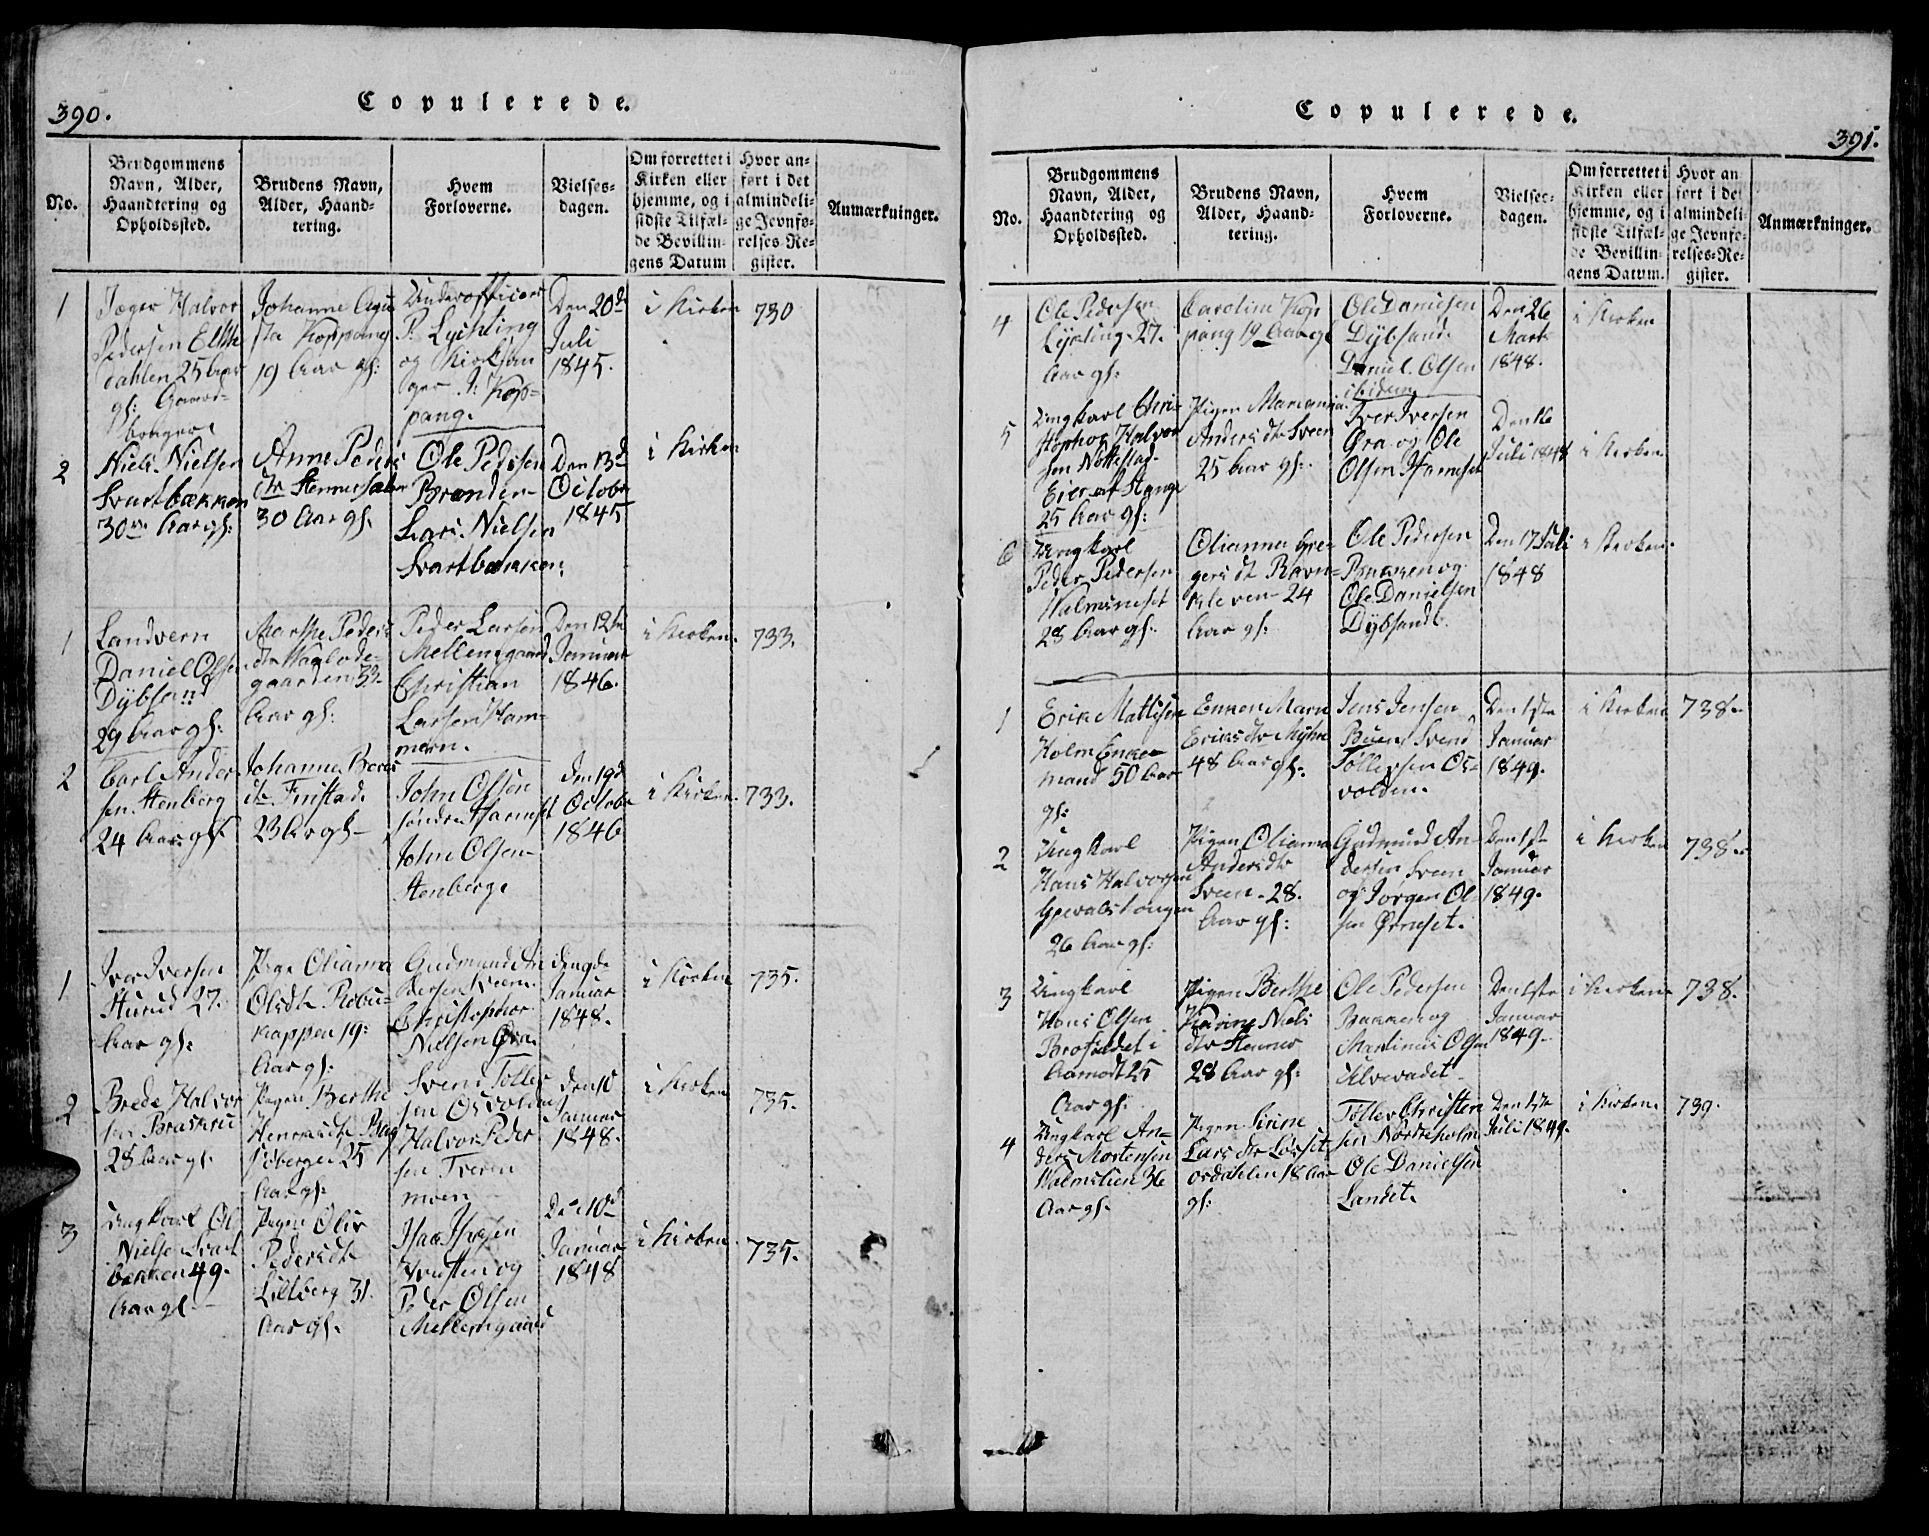 390.
Copulerede.
No.
Brudgommens
Navn, Alder,
Haandtering og
Opholdssted.
Brudens Navn,
Alder, Haand-
tering.
Hvem
Forloverne.
Vielses-
dagen.
Om forrettet i
Kirken eller
hjemme, og i
sidste Tilfæl-
de Bevillin-
gens Datum
Hvor an-
ført i det
almindeli-
ge Jevnfø-
relses-Re-
gister.
Anmærkninger.
1
Jæger Halvor
Pedersen
dahlen 25 Aar
gl: Gaard-
bruger
Johanne Agu
sta Koppang
19 Aar gl:
Underofficer
P. Lysling
og Kirkesan
ger J: Kop-
pang.
Den 20de
Juli
1845.
i Kirken
730
2
Niels Nielsen
Svartbækken
30 Aar gl:
Anne Peders
dtr
30 Aar gl.
Ole Pedersen
Brænden-
Lars Nielsen
Svartbækken.
Den 13d
October
1845
i Kirken
1
Landvern
Daniel Olsen
Dybsand
29 Aar gl:
Marthe Peders
dtr
gaarden 32
Aar gl:
Peder Larsen
Mellemgaard
Christian
Larsen Ham-
mern.
Den 12te
Januar
1846.
i Kirken.
733.
2
Carl Ander
sen Stenberg
24 Aar gl:
Johanne
dtr Finstad.
23 Ar gl-
John Olsen
søndre Harnset
John Olsen
Stenberg.
den 19d
October
1846
i Kirken.
733.
1
Iver Iversen
Sturud 27.
Aar gl:
Pige Olianna
Olsdtr
kappen 19:
Aar gl:
Gudmund An
dersen Sveen.
Christopher
Nielsen Øra.
Januar
1848.
i Kirken
735.
2
Brede Halvor
sen
28 Aar gl.
Pigen Berthe
Henriksdtr
sjøbergen 25
Aar gl:
Svend Toller
sen Osvolden
Halvor Peder
sen
moen
den 10
Januar
1848.
i Kirken
735.
3
Ungkarl Ol
Nielsen Svart
bækken 49.
Aar gl-
Pigen Oliv
Pedersdtr
Lillberg 31.
Aar gl.
og
Peder Olsen
Mellemgaard
Den 10d
Januar
1848
i Kirken.
735.
Copulerede.
391.
No.
Brudgommens
Navn, Alder,
Haandtering og
Opholdssted.
Brudens Navn,
Alder, Haand-
tering.
Hvem
Forloverne.
Vielses-
dagen.
Om forrettet i
Kirken eller
hjemme, og i
sidste Tilfæl-
de Bevillin-
gens Datum.
Hvor an
ført i det
almindeli-
ge Jevnfø-
relses-Re-
gister.
Anmærkninger.
4
Ole Pedersen
Lysling 27.
Aar gl:
Caroline Kop
pang 19 Aar gl
Ole Danielsen
Dybsand.
Daniel Olsen
ibidem
Den 26
Marts
1848.
i Kirken
5
Ungkarl Chri-
stopher Halvor
sen Nøttestad
Eier af Stange
25 Aar gl:
Pigen Marianna
Andersdtr Sveen
25 Aar gl:
Iver Iversen
Øra og Ole
Olsen Harnset
Den 16
Juli 1848
i Kirken
6
Ungkarl
Peder Pedersen
Valmsneset
28 Aar gl.
Olianna Gre-
gersdt Ravn-
kleven 24
Aar gl:
Ole Pedersen
Bakken og
Ole Danielsen
Dybsandt.
Den 17 Juli
1848
i Kirken.
1
Erik Mattisen
Holm Enke
mand 50 Aar
gl:
Enken Marn
Eriksdtr Myhre
48 Aar gl:.
Jens Jensen
Buen, Svend
Tollefsen Os-
volden.
Den 1ste
Januar
1849.
i Kirken
738.
2
Ungkarl
Hans Halvorsen
26 Aar gl:
Pigen Olianna
Andersdtr
Sveen - 28.
Aar gl:
Gudmund An-
dersen Sveen
og Jørgen Ol-
sen Ørnset.
Den 1ste
Januar
1849.
i Kirken
738.
3
Ungkarl
Hans Olsen
Brofædet i
Aamodt 25
Aar gl.
Pigen Berthe
Karine Niels
dtr Stenmo
28 Aar gl:
Ole Pedersen
Bakken og
Martinus Olsen
Ulvevadet
Den 1ste
Januar
1849.
i Kirken
738.
4
Ungkarl An-
ders Mortensen
Valmstien 36
Aar gl.
Pigen Sinne
Larsdtr Løsset
osdahlen 18 Aar
gl:
Tollev Christen
sen Nordreholm
Ole Danielsen
Landet.
Den 1ste
Juli 1849.
i Kirken
739.